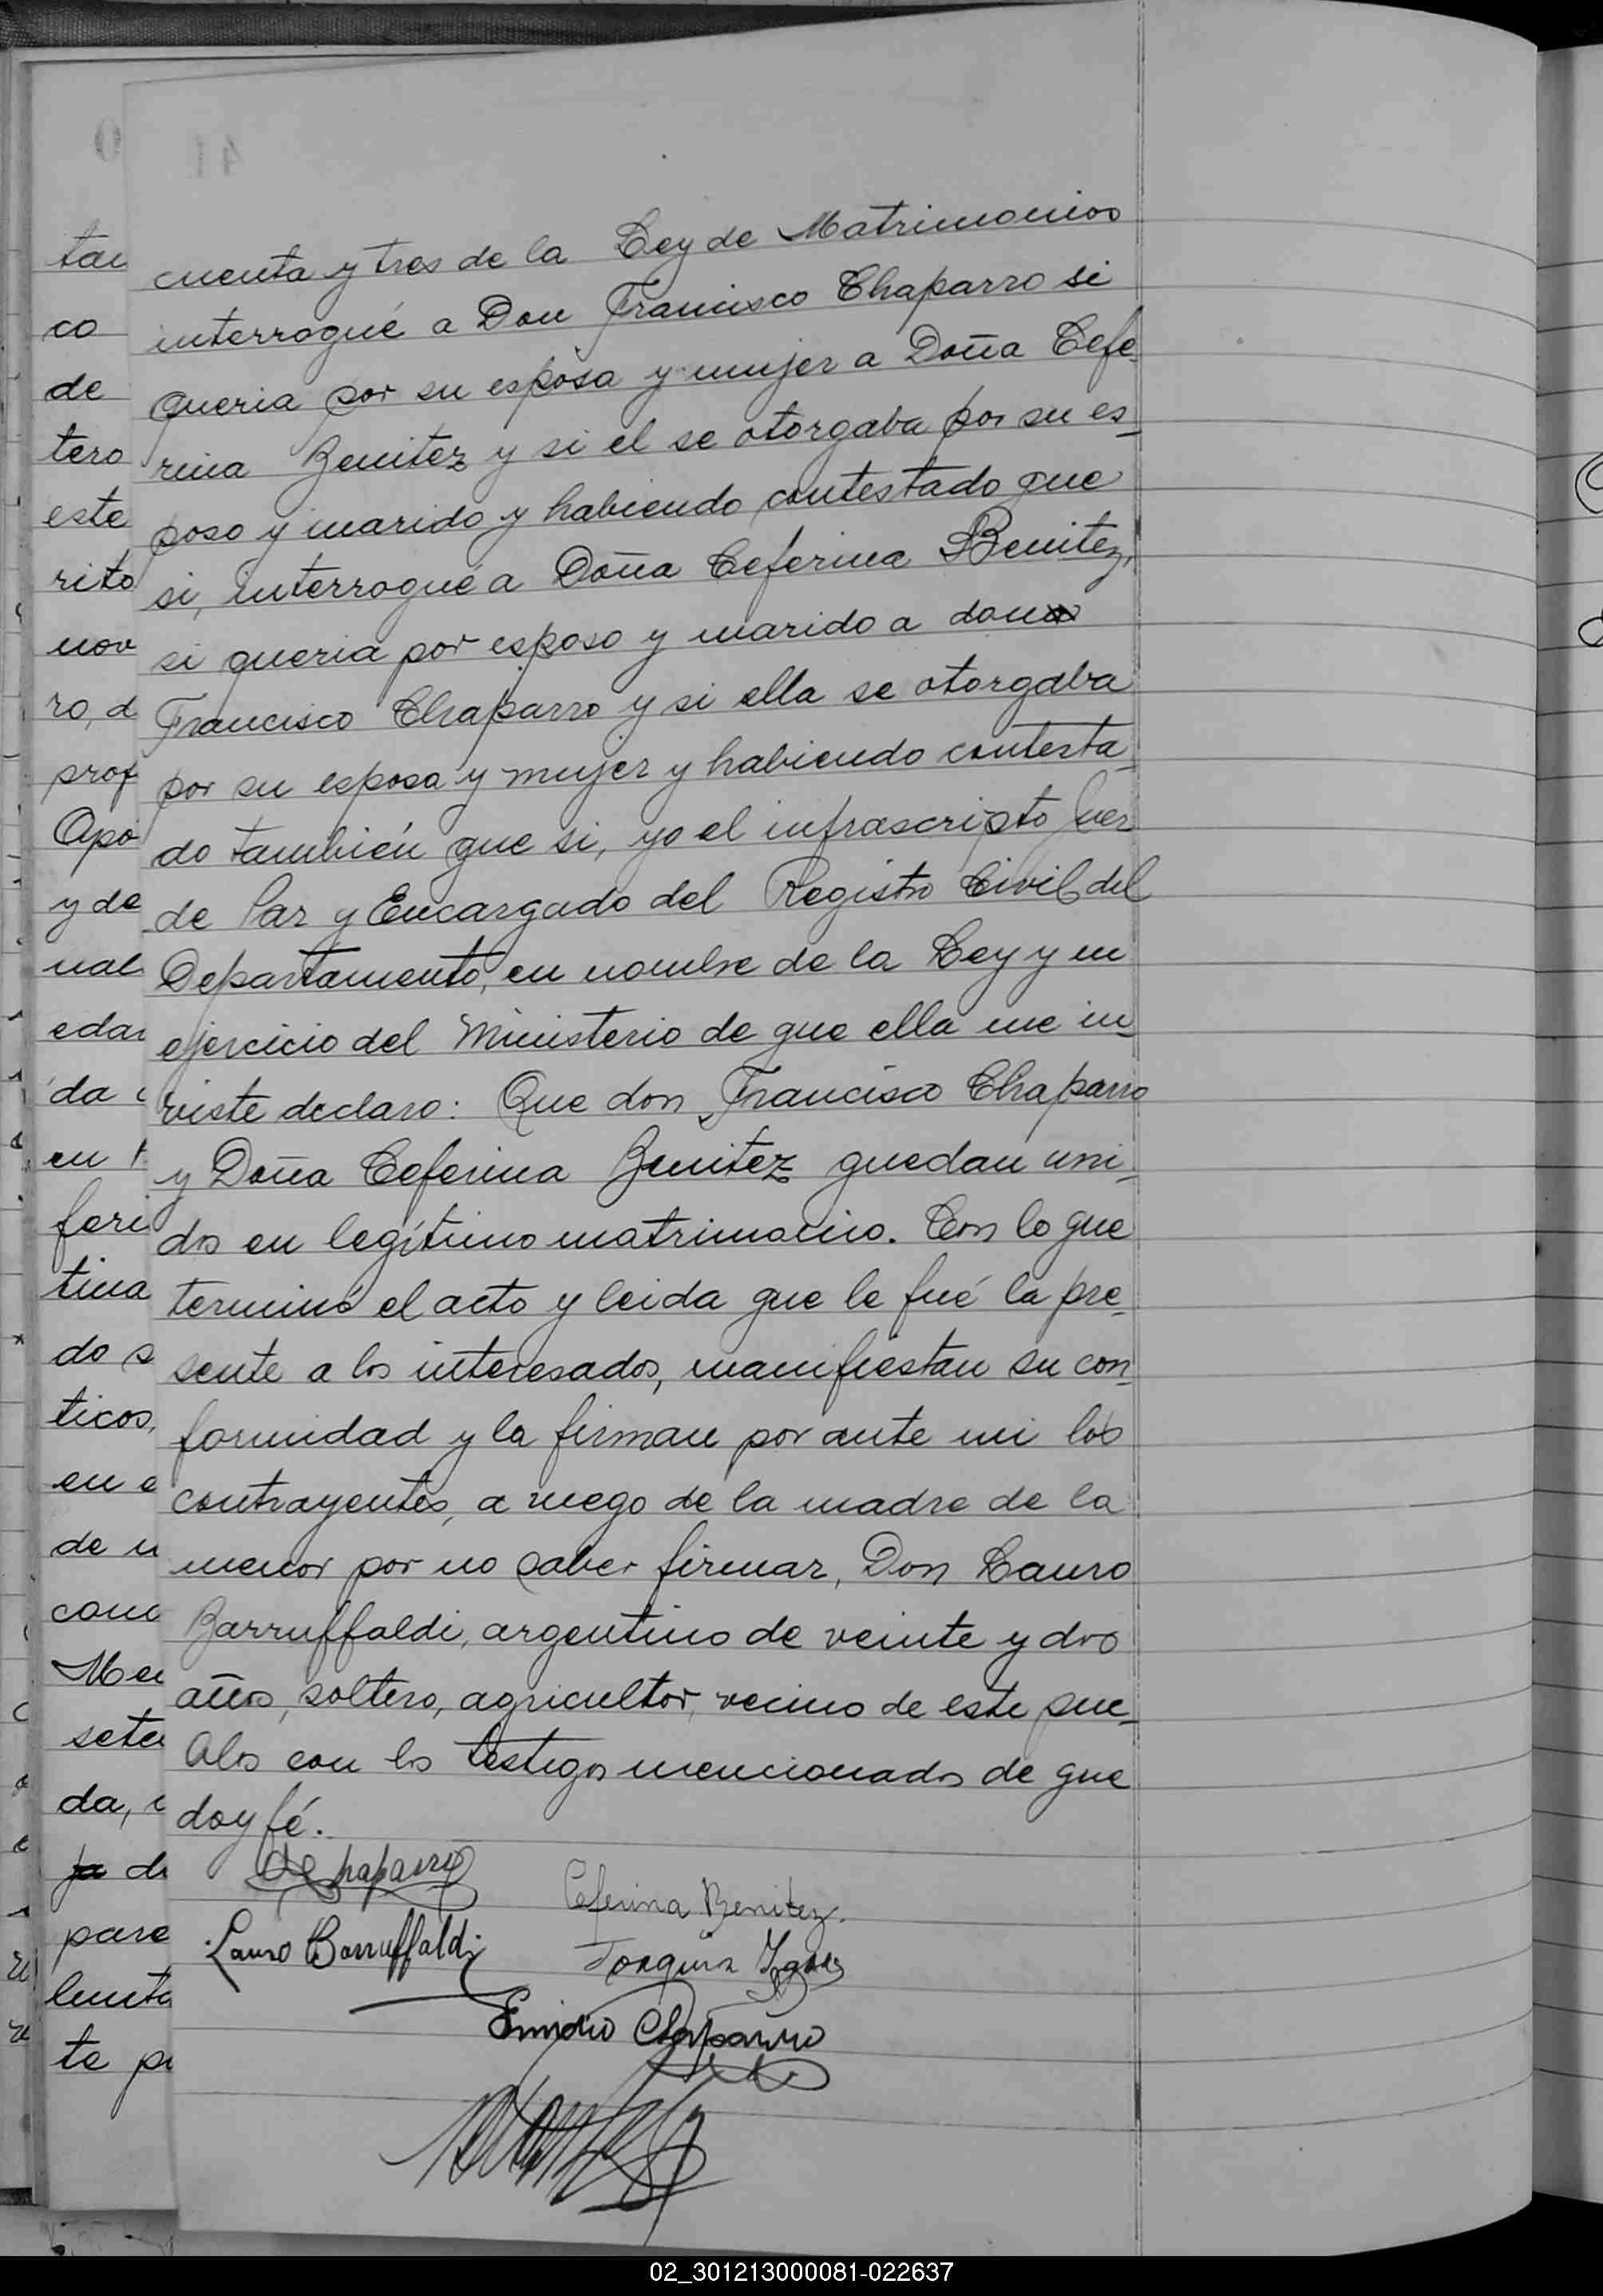 cuenta y tres de la Ley de Matrimonios
interrogué a Don Francisco Chaparro si
queria por su esposa y mujer a Doña Cefe
rina Benitez y si el se otorgaba por su es_
poso y marido y habiendo contestado que
si, interrogué a Doña Ceferina Benitez,
si queria por esposo y marido a don
Francisco Chaparro y si ella se otorgaba
por su esposa y mujer y habiendo contesta_
do también que si, yo el infrascripto Juez
de Paz y Encargado del Registro Civil del
Departamento, en nombre de la Ley y en
ejercicio del Ministerio de que ella me in_
viste declaro: Que don Francisco Chaparro
y Doña Ceferina Benitez quedan uni_
dos en legítimo matrimonio. Con lo que
terminó el acto y leida que le fué la pre_
sente a los interesados, manifiestan su con_
formidad y la firman por ante mi los
contrayentes, a ruego de la madre de la
menor por no saber firmar, Don Lauro
Barruffaldi, argentino de veinte y dos
años, soltero, agricultor, vecino de este pue_
blo con los testigos mencionados de que
doy fé.
Ceferina Benitez.
Lauro Barruffaldi
Joaquin
Emidio Chaparro
tan
co
de
tero
este
rito
nov
ro, d
prof
Apo
y de
nal
edar
da
en
feri
tina
do s
ticos,
en e
de u
como
Mer
seten
da,
de
pare
te
02_301213000081-022637